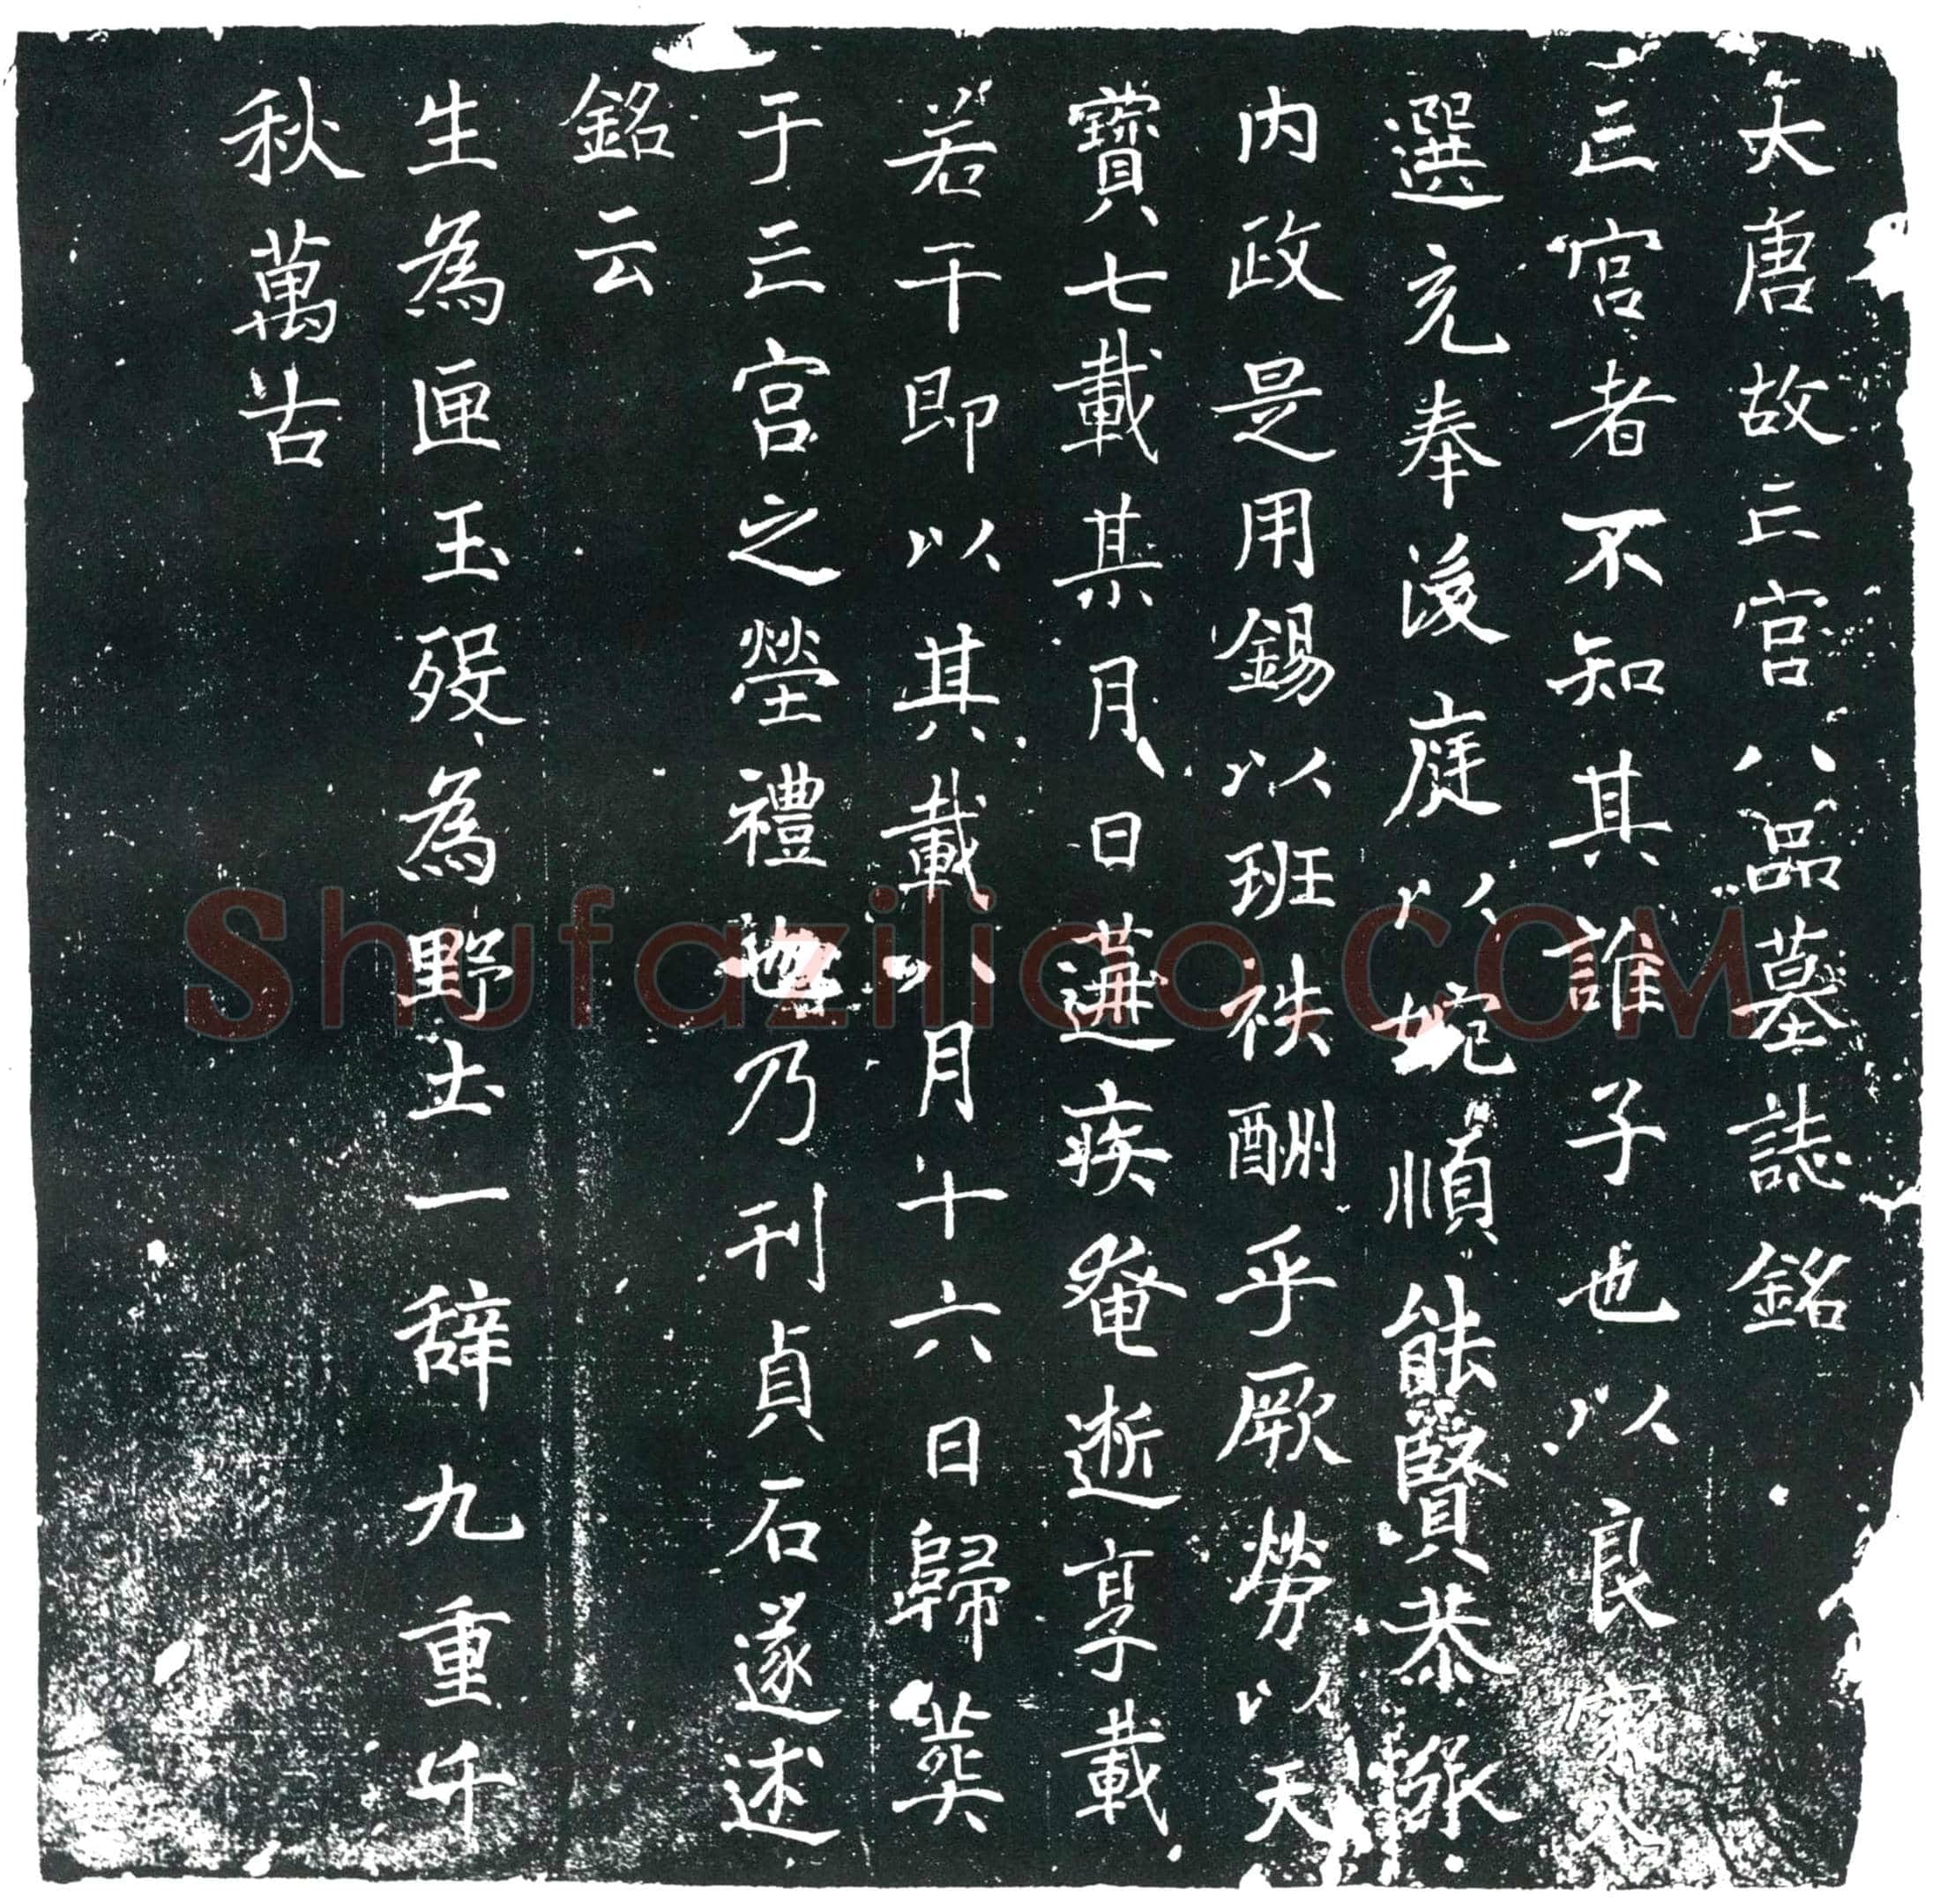 大唐故亡宫八品墓誌銘
亡宫者不知其誰子也以良家入
選充奉後庭以婉順能賢恭承
内政是用錫以班秩酬乎厥勞以天
寶七載某月日遘疾奄逝享載
若干即以其載八月十六日歸葬
于亡宫之塋禮也乃刊貞石遂述
銘云
生為匣玉殁為野土一辞九重千
秋萬古
Shufaziliao.COM